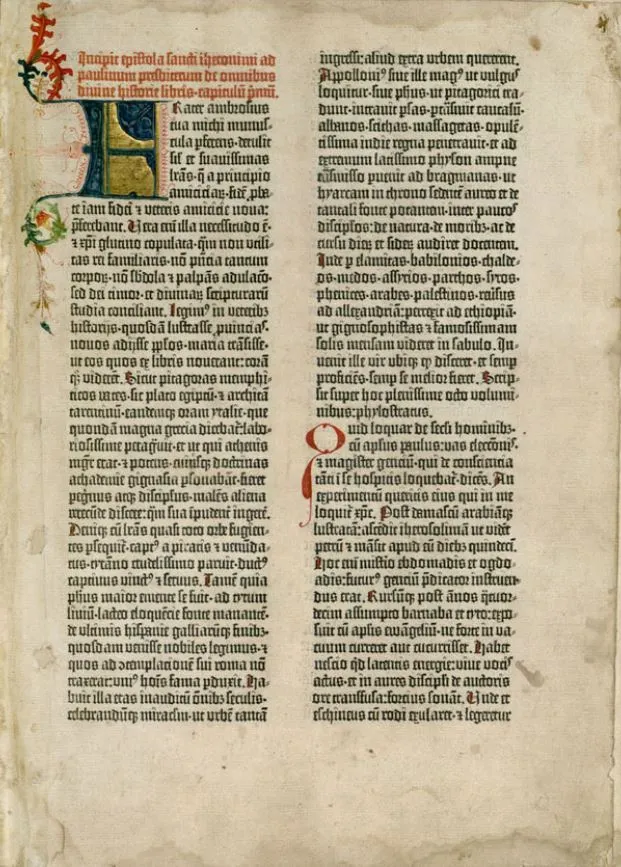 Incipit epistola sancti iheronimi ad
paulinum presbiterum de omnibus
divine historie libris·capitulū p̄mū.
Frater ambrosius
tua michi munus-
cula pferens·detulit
sil et suauissimas
lrās·q̄ a principio
amiciciaꝝ·fidē pba-
te iam fidei ⁊ veteris amicicie noua:
pferebant. Vera em̄ illa necessitudo ē·
⁊ xp̄i glutino copulata·qm̄ non vtili-
tas rei familiaris·nō pn̄tia tantum
corpoꝝ·nō sbdola ⁊ palpās adulacō·
sed dei timor·et diuinaꝝ scripturarū
studia conciliant. Legimꝰ in veteribꝫ
historijs·quosdā lustrasse puincias·
nouos adijsse pplos·maria trāsisse·
ut eos quos ex libris nouerant: corā
qꝫ viderēt. Sicut pitagoras memphi-
ticos vates·sic plato egiptū·⁊ architā
tarentinū·eandemqꝫ oram ytalie·que
quondā magna grecia dicebat̄·labo-
riosissime peragͣuit·et ut qui athenis
mgr̄ erat·⁊ potens·cuiusqꝫ doctrinas
achademie gignasia psonabāt·fieret
pegrinus atqꝫ discipulus·malēs aliena
verecūde discere·qͣm sua īpudent̄ ingerē.
Deniqꝫ cū lrās quasi toto orbe fugien-
tes psequit̄·captꝰ a piratis ⁊ venūda-
tus·tyrāno crudelissimo paruit·ductꝰ
captiuus vinctꝰ ⁊ seruus. Tamē quia
phus maior emente se fuit·ad tytum
liuiū·lacteo eloquētie fonte manantē·
de vltimis hispanie galliarūqꝫ finibꝫ·
quosdam venisse nobiles legimus·⁊
quos ad ꝯtemplationē sui roma nō
traxerat·vniꝰ hoīs fama pduxit. Ha-
buit illa etas inauditū oīnibꝫ seculis·
celebrandūqꝫ miraclm·ut vrbē tantā
ingressi: aliud extra vrbem quererent.
Appolloniꝰ siue ille magꝰ ut vulgus
loquitur·siue phus·ut pitagorici tra-
dunt·intrauit psas·ptrāsiuit caucasū·
albanos·scithas·massagetas·opulē-
tissima indie regna penetrauit·et ad
extremum latissimo physon ampne
trāsmisso puenit ad bragmanas·ut
hyarcam in throno sedentē aureo et de
tantali fonte potantem·inter paucos
discipulos·de natura·de moribꝫ·ac de
cursu dierꝝ et siderꝝ audiret docentem.
Inde p elamitas·babilonios·chalde-
os·medos·assyrios·parthos·syros·
phenices·arabes·palestinos·reūsus
ad allexandriā: perrexit ad ethiopiā·
ut gignosophistas ⁊ famosissimam
solis mensam videret in sabulo. In-
uenit ille vir vbiqꝫ qꝫ disceret·et semp
proficiēs·semp se melior fieret. Scrip-
sit super hoc plenissime octo volumi-
nibus: phylostratus.
Quid loquar de seculi hominibꝫ·
cū apl̄us paulus: vas electōnis·
⁊ magister gentiū·qui de consciencia
tāti ī se hospitis loquebat̄·dicēs. An
experimentū queritis eius qui in me
loquit̄ xp̄c. Post damascū arabiāqꝫ
lustratā: ascēdit iherosolimā ut videt
petrū ⁊ māsit apud eū diebꝫ quindeci.
Hoc em̄ misterio ebdomadis et ogdo-
adis: futurꝰ gentiū p̄dicator instruen-
dus erat. Rursūqꝫ post ānos qͣtuor-
decim assumpto barnaba et tyto: expo-
suit cū aplis euāgeliū·ne forte in va-
cuum curreret aut cucurrisset. Habet
nescio qͥd latentis energie: viue vocis
actus·et in aures discipli de auctoris
ore transfusa: forcius sonāt. Vnde et
eschineus cū rodi exularet·⁊ legeretur